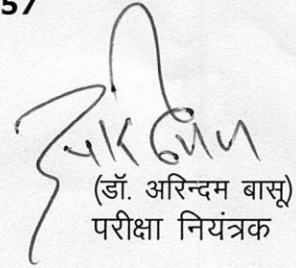 57
(डॉ. अरिन्दम बासू)
परीक्षा नियंत्रक